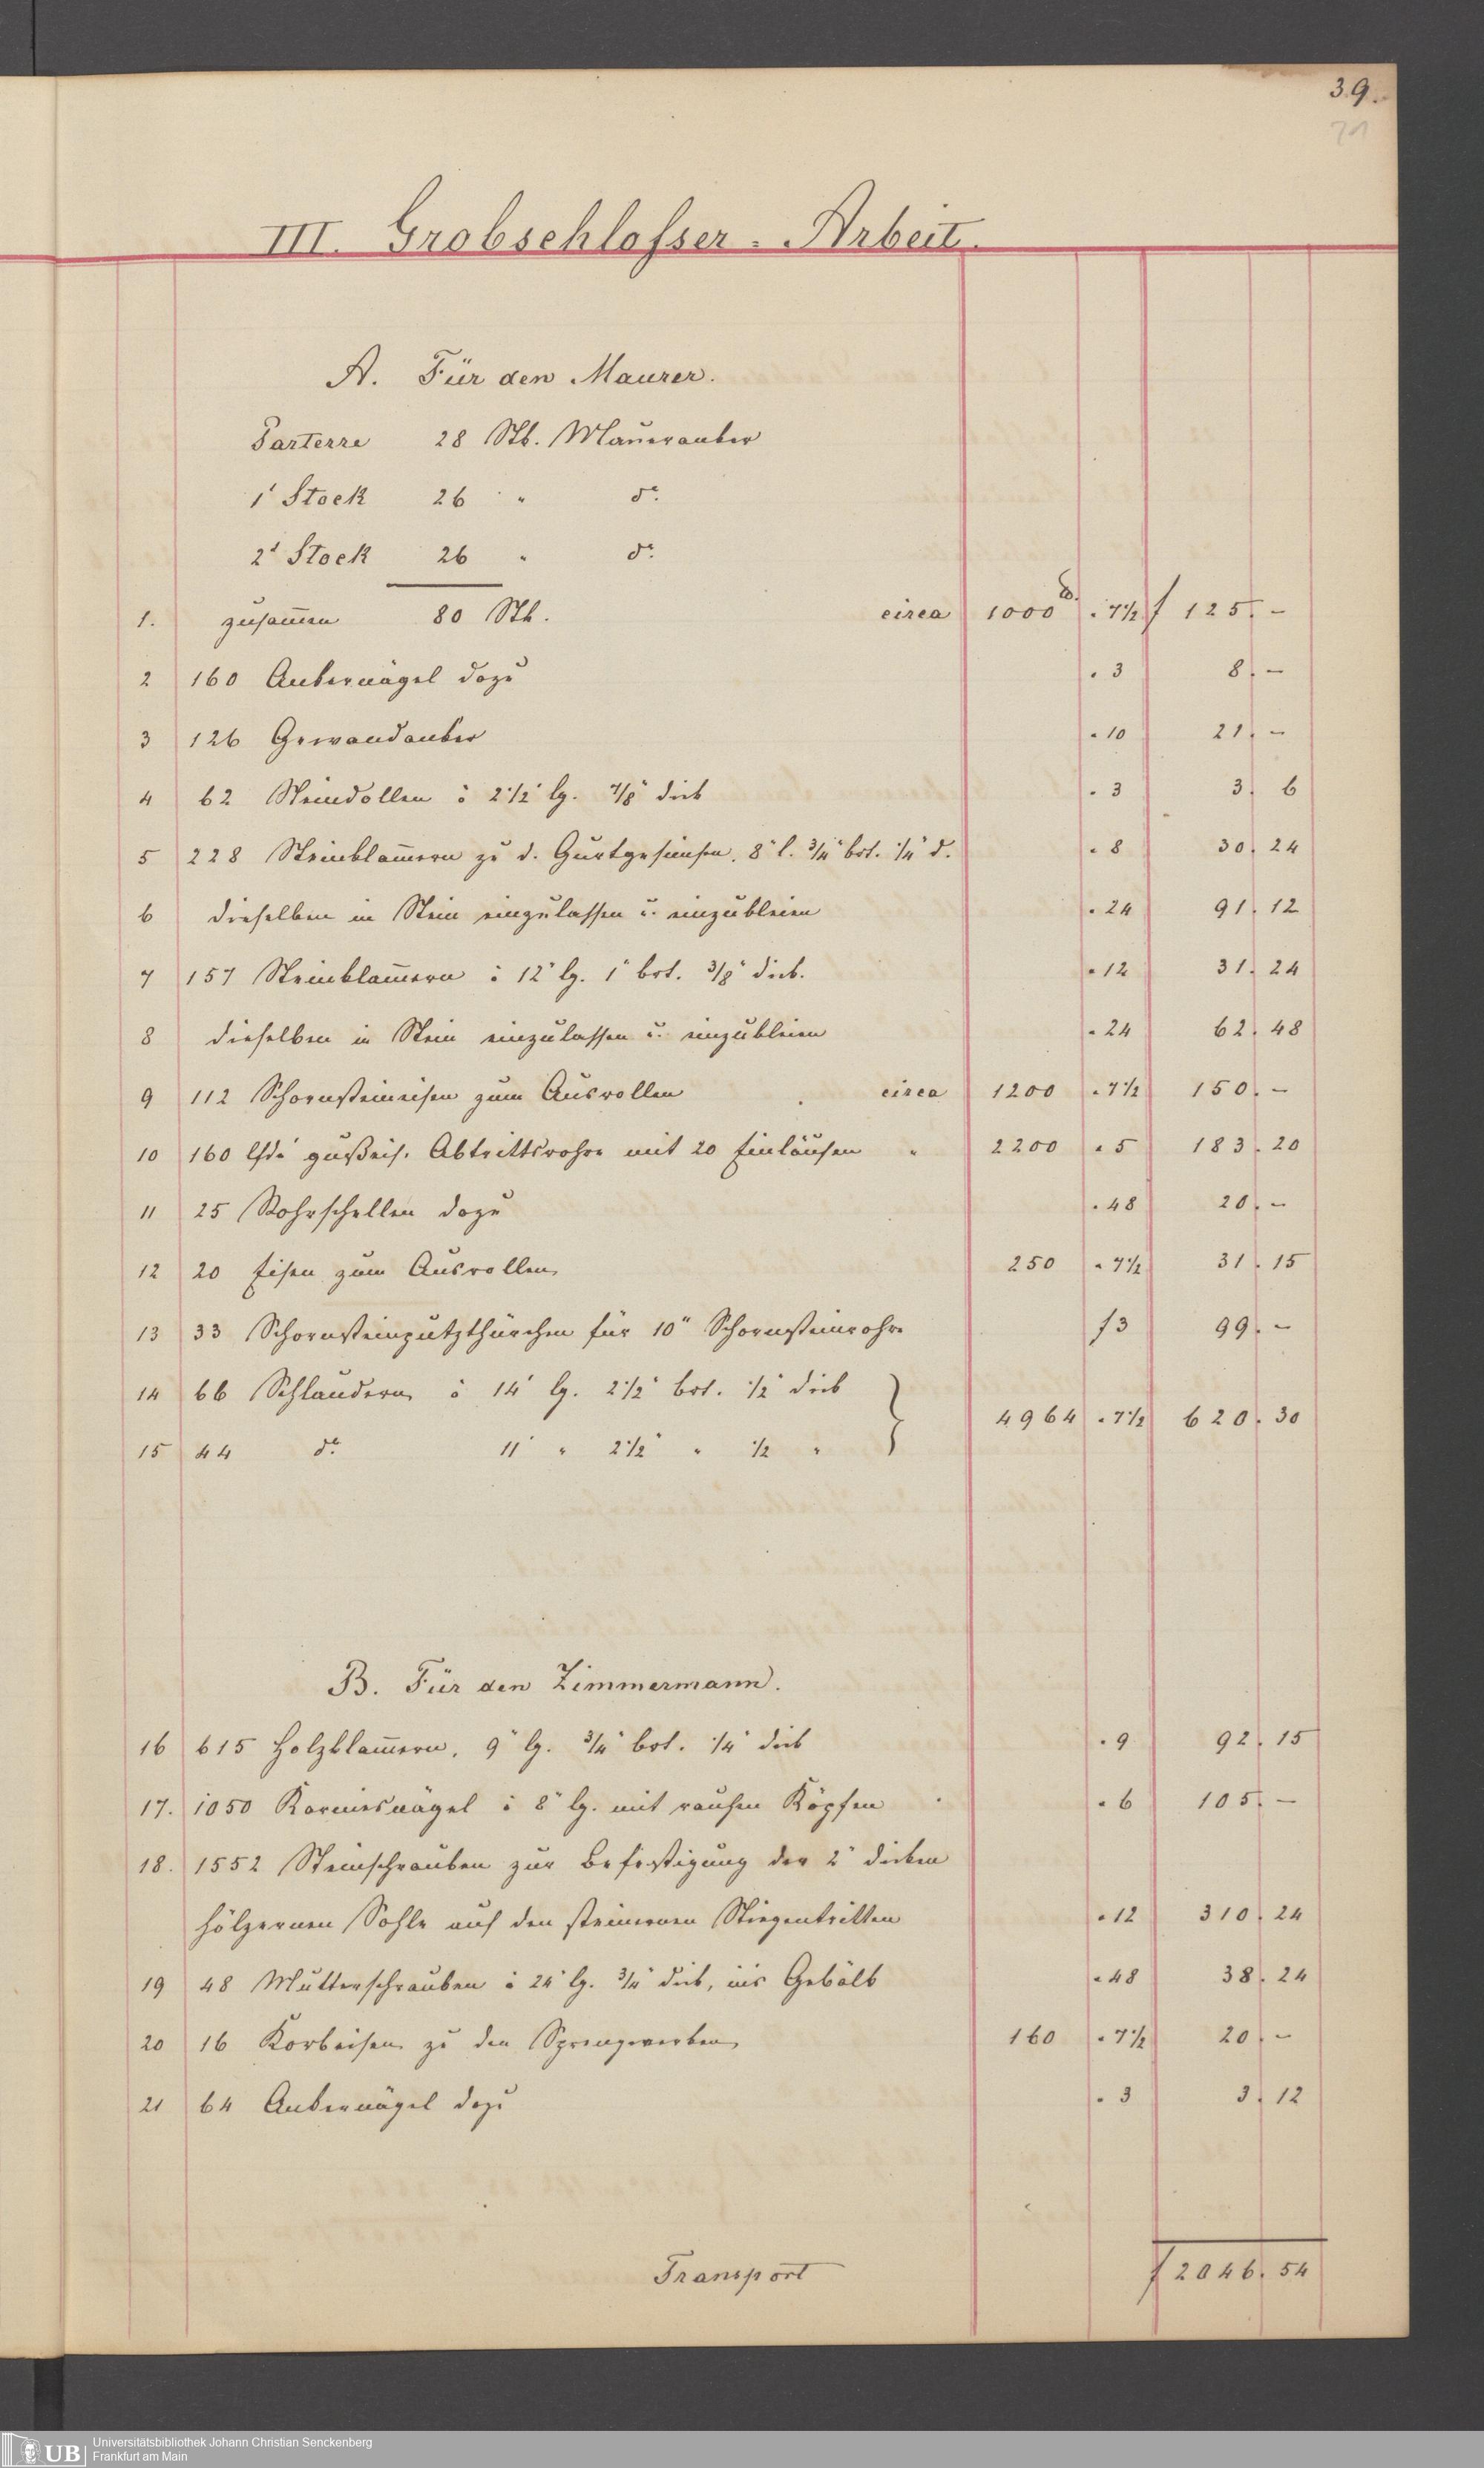 39.
71
III. Grobschlosser-Arbeit.
A. Für den Maurer.
Parterre 28 Stk. Maueranker
1' Stock 26 " do.
2' Stock 26 " do.
1. zusam̄en 80 Stk. circa 1000 ℔. " 7½ f 125. –
2 160 Ankernägel dazu " 3 8. –
3 126 Gewandanker " 10 21. –
4 62 Steindollen à 2½" lg. 7/8" dick " 3 3. 6
5 228 Steinklam̄ern zu d. Gurtgesimsen, 8" l. ¾" brt. ¼" d. " 8 30. 24
6 dieselben in Stein einzulassen u. einzubleien " 24 91. 12
7 157 Steinklam̄ern à 12" lg. 1" brt. 3/8" dick. " 12 31. 24
8 dieselben in Stein einzulassen u. einzubleien " 24 62. 48
9 112 Schornsteineisen zum Ausrollen circa 1200 " 7½ 150. –
10 160 lfde' gußeis. Abtrittsrohre mit 20 Einläufen " 2200 " 5 183. 20
11 25 Rohrschellen dazu " 48 20. –
12 20 Eisen zum Ausrollen 250 " 7½ 31. 15
13 33 Schornsteinputzthürchen für 10" Schornsteinrohre f 3 99. –
14 66 Schlaudern à 14' lg. 2½" brt. ½" dick
4964 " 7½ 620. 30
15 44 do. 11' " 2½" " ½ "
B. Für den Zimmermann.
16 615 Holzklam̄ern, 9" lg. ¾" brt. ¼" dick " 9 92. 15
17. 1050 Karniesnägel à 8" lg. mit rauhen Köpfen " 6 105. –
18. 1552 Steinschrauben zur Befestigung der 2" dicken
hölzernen Sohle auf den steinernen Stiegentritten " 12 310. 24
19 48 Mutterschrauben à 24" lg. ¾" dick, ins Gebälk " 48 38. 24
20 16 Korbeisen zu den Sprengwerken 160 " 7½ 20. –
21 64 Ankernägel dazu " 3 3. 12
Transport f 2046. 54
UB Universitätsbibliothek Johann Christian Senckenberg
Frankfurt am Main